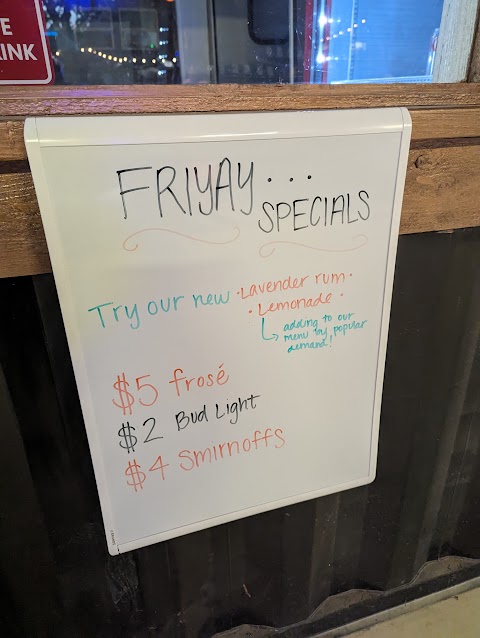 E
INK
FRIYAY...
SPECIALS
Try our new • Lavender rum •
• Lemonade •
adding to our
menu by popular
demand!
$5 frosé
$2 Bud Light
$4 Smirnoffs